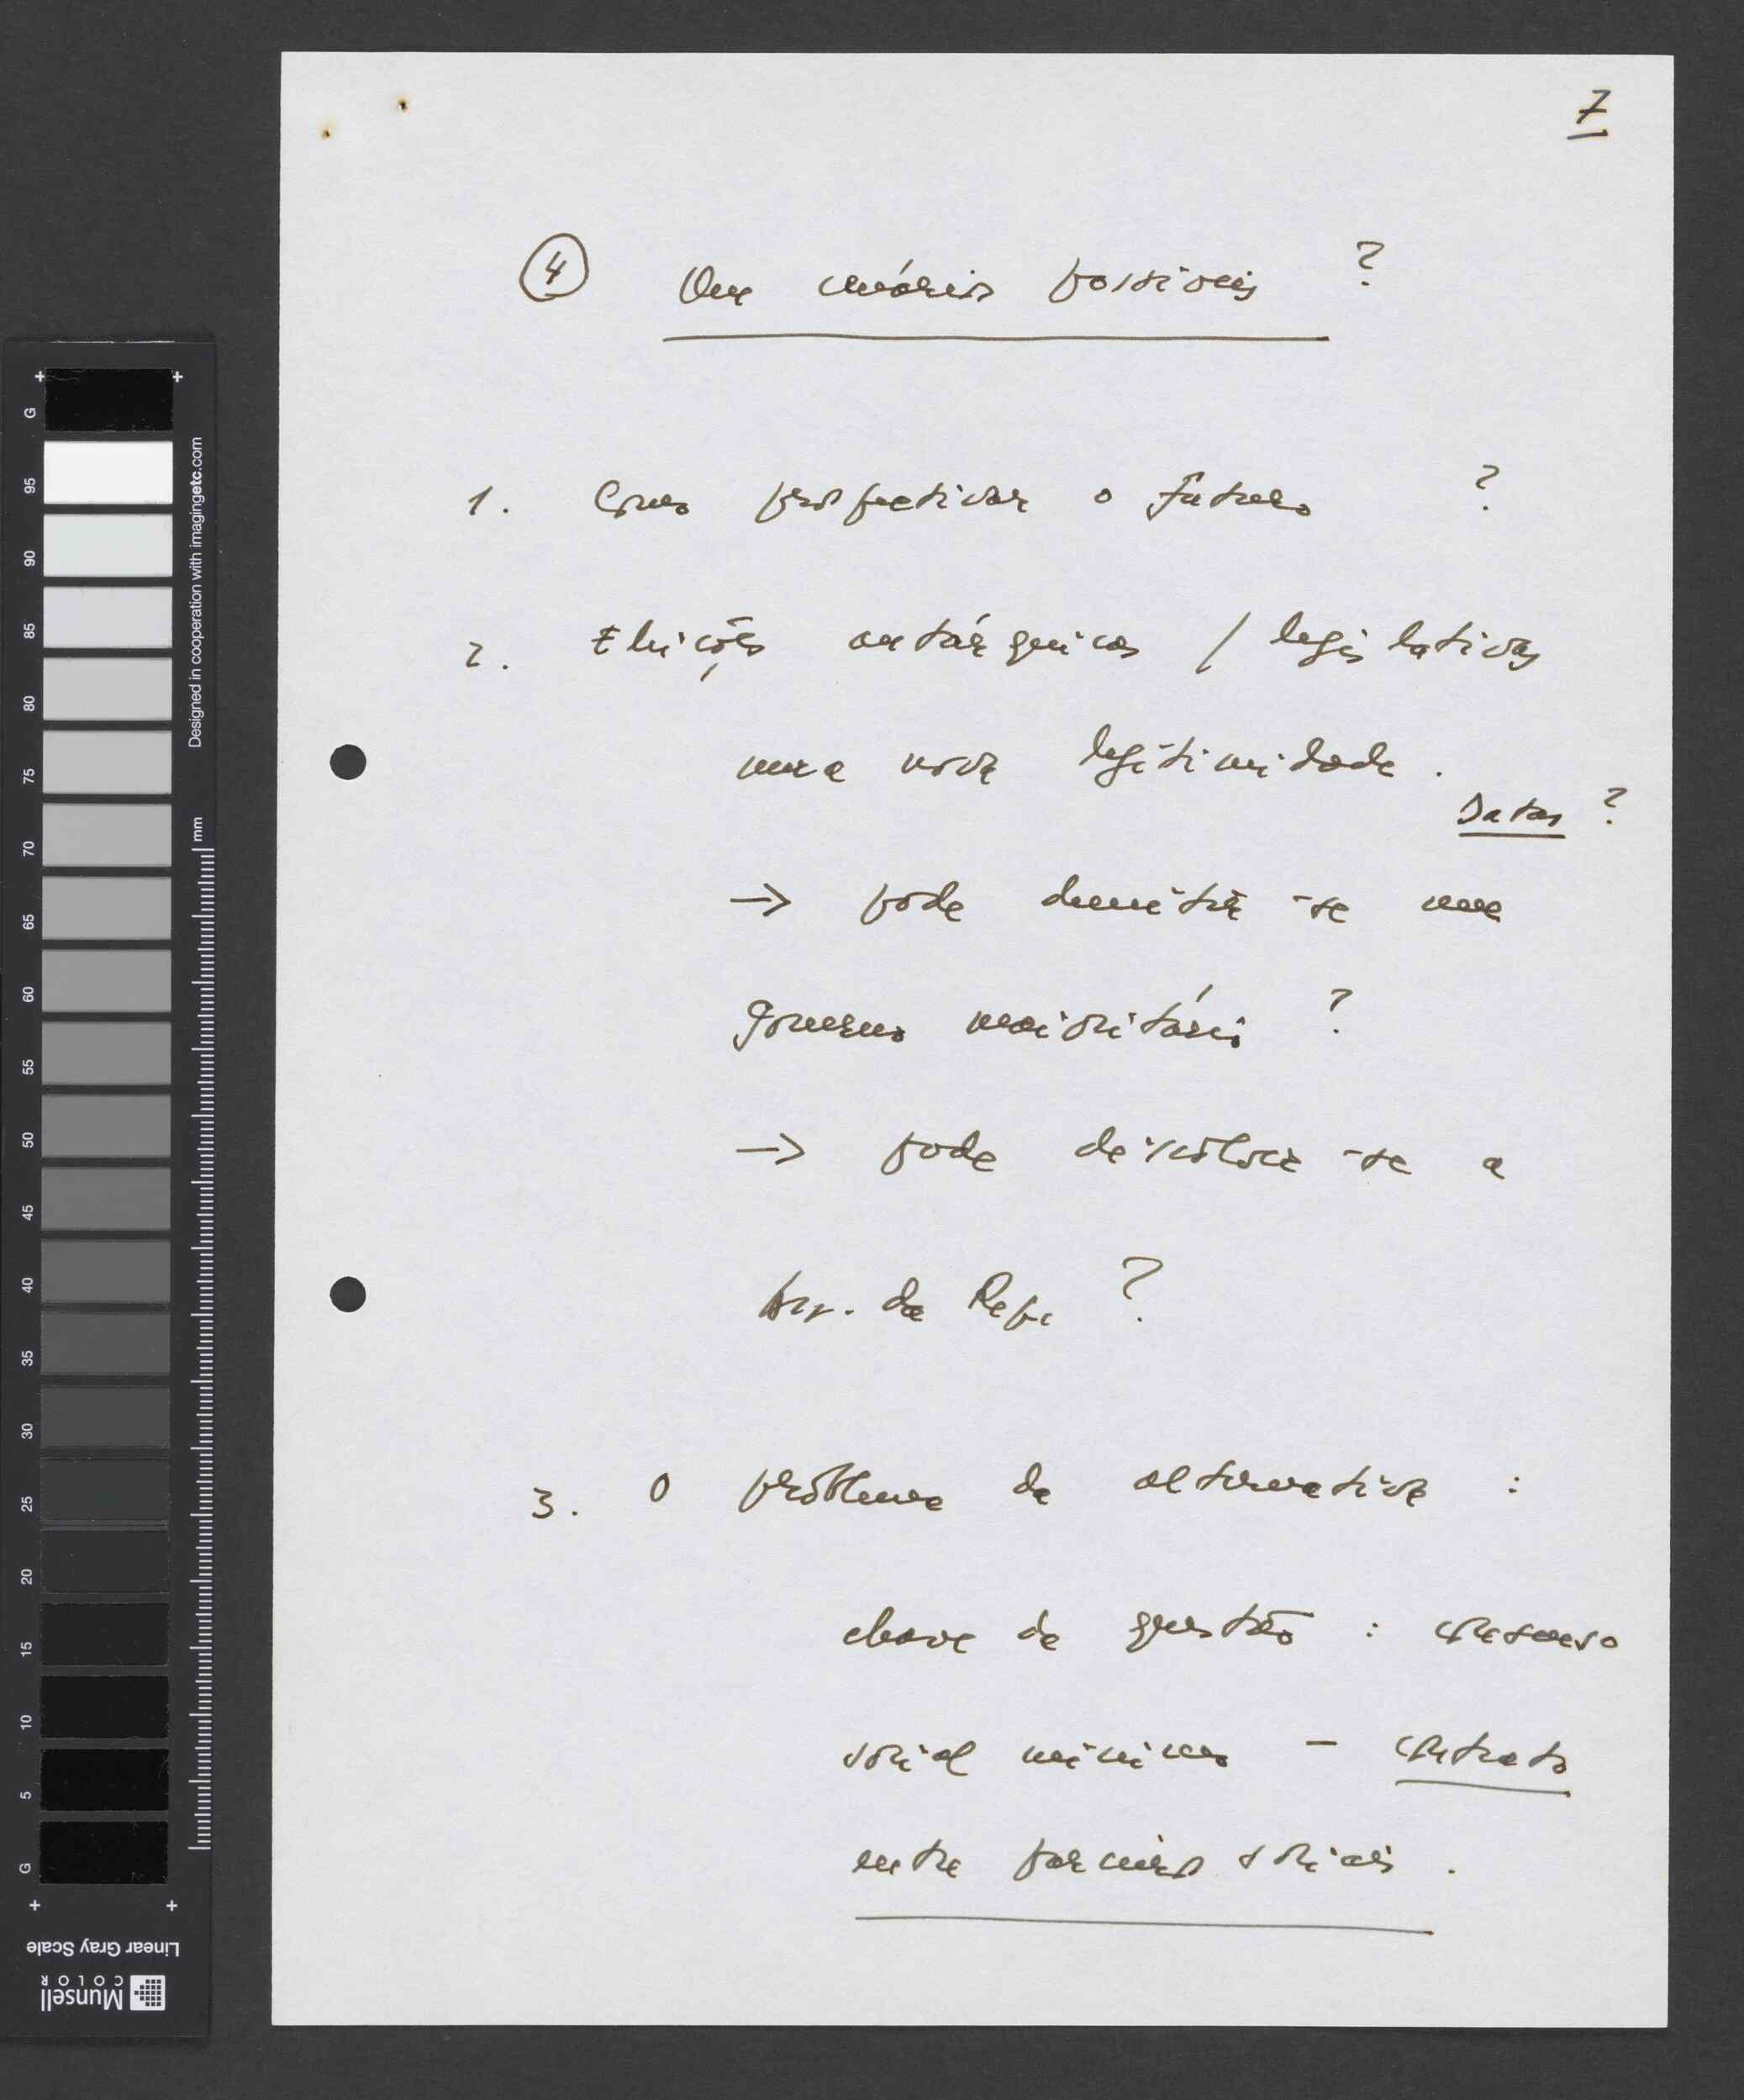 7
④ Que cenários possíveis ?
1. Como prospectivar o futuro ?
2. Eleições autárquicas / legislativas
uma nova legitimidade .
Datas ?
→ pode demitir-se um
governo maioritário ?
→ pode dissolver-se a
Ass. da Rep. ?
3. O problema da alternativa :
chave da questão : consenso
social mínimo - contrato
entre parceiros sociais .
G 95 90 85 80 75 70 65 60 55 50 45 40 35 30 25 20 15 10 5 G
Designed in cooperation with imagingetc.com
mm
Linear Gray Scale
Munsell
COLOR